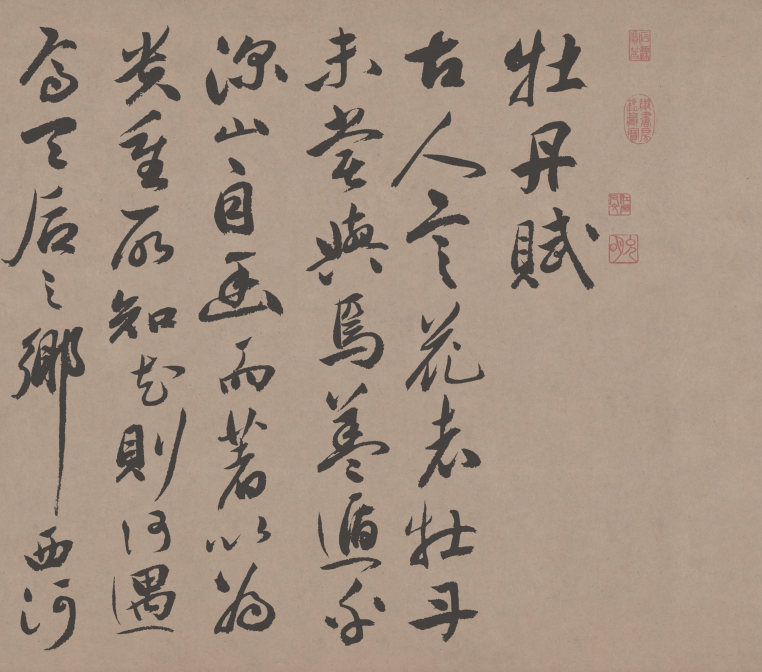 牡丹賦
古人言花者牡丹
未嘗與焉蓋遁
深山自幽而著以為
貴重所知花則何遇
焉天后之鄉西河